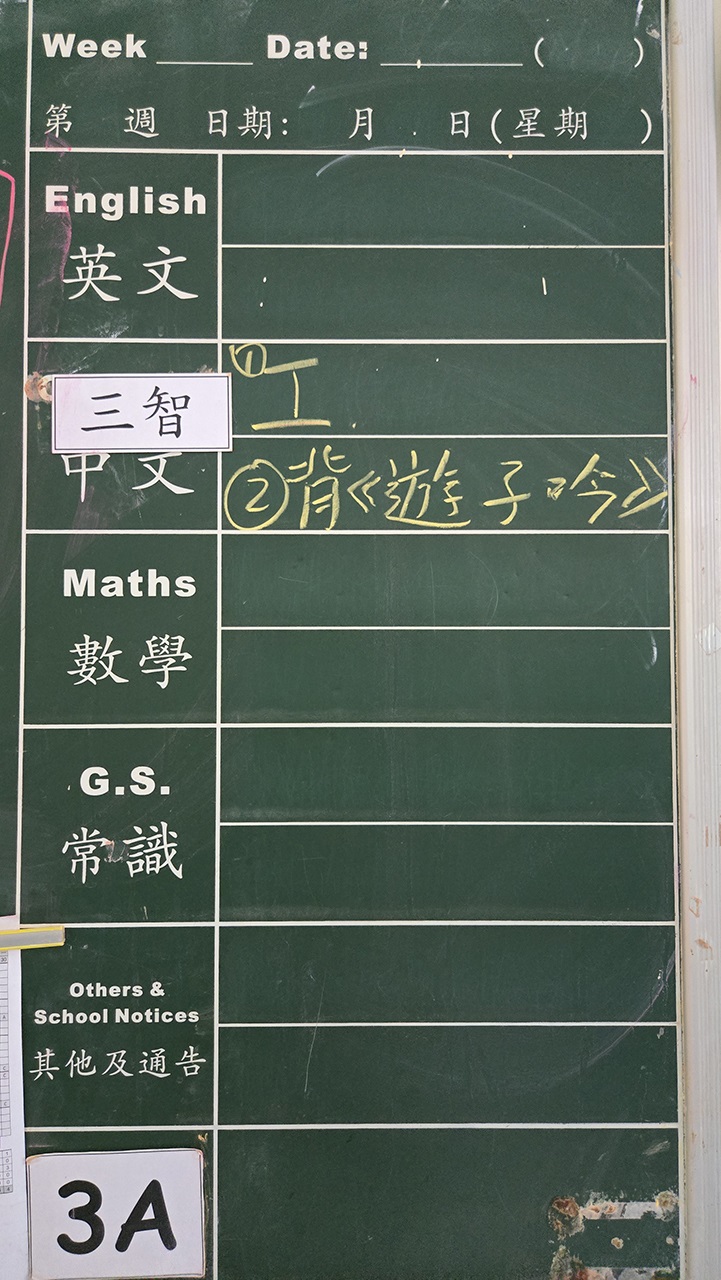 Week ____ Date: ______ (    )
第 週 日期: 月 日(星期 )
English
英文
① 工
三智
中文
②背《遊子吟》
Maths
數學
G.S.
常識
Others &
School Notices
其他及通告
3A